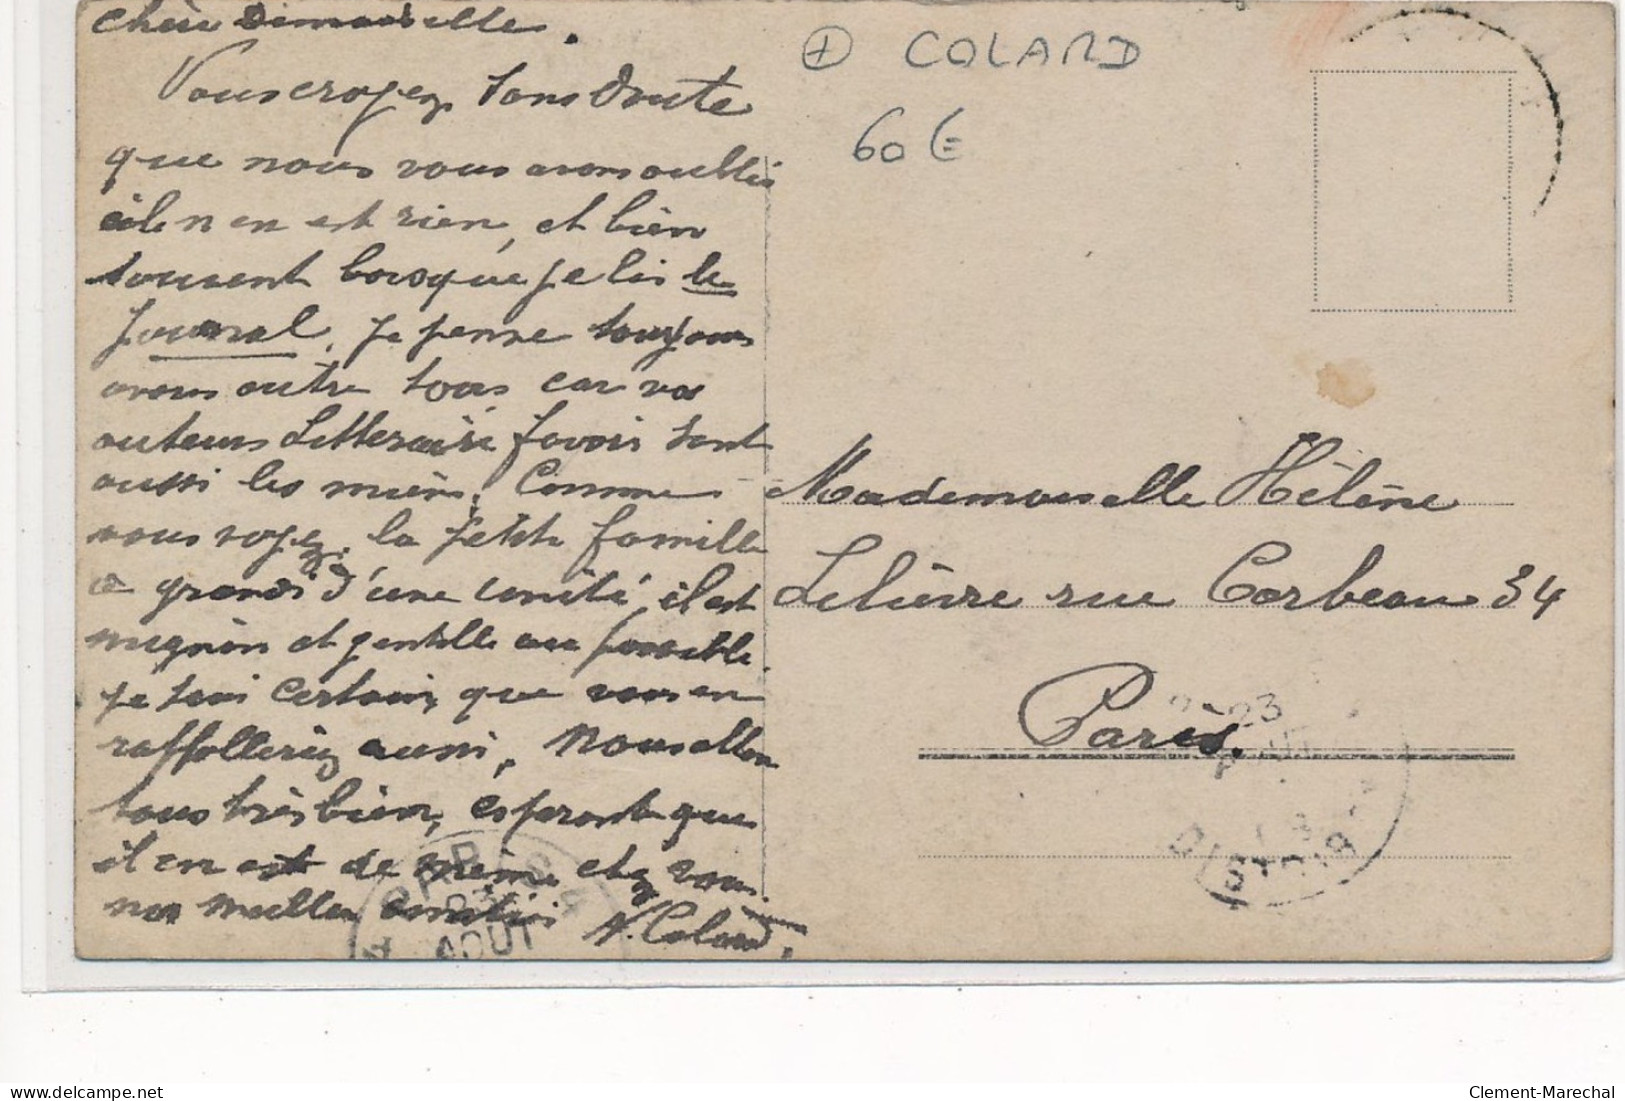 Chère Demoiselle.
Vous croyez sans doute
que nous vous avons oubliés
il n en est rien, et bien
souvent lorsque je lis le
Journal, je pense toujours
a vous autre tous car vos
auteurs Litteraire favoris sont
aussi les miens, Comme
vous voyez, la petite famille
a grandi d'une unité, il est
mignon et gentille au possible
je suis certain que vous en
raffolleriez aussi, Nous allons
tous très bien, esperant que
il en est de même chez vous
nos meilleures amitiés N. Colard,
+ COLARD
60 €
Mademoiselle Hélène
Lelièvre rue Corbeau 34
Paris.
PARIS
23
AOUT
23
DISTRIB
delcampe.net
Clement-Marechal